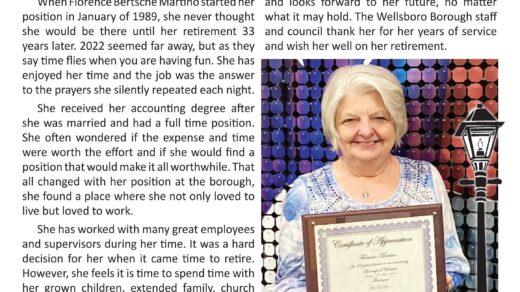 When Florence Bertsche Martino started her
position in January of 1989, she never thought
she would be there until her retirement 33
years later. 2022 seemed far away, but as they
say time flies when you are having fun. She has
enjoyed her time and the job was the answer
to the prayers she silently repeated each night.
She received her accounting degree after
she was married and had a full time position.
She often wondered if the expense and time
were worth the effort and if she would find a
position that would make it all worthwhile. That
all changed with her position at the borough,
she found a place where she not only loved to
live but loved to work.
She has worked with many great employees
and supervisors during her time. It was a hard
decision for her when it came time to retire.
However, she feels it is time to spend time with
her grown children, extended family, church
and looks forward to her future, no matter
what it may hold. The Wellsboro Borough staff
and council thank her for her years of service
and wish her well on her retirement.
Certificate of Appreciation
Florence Martino